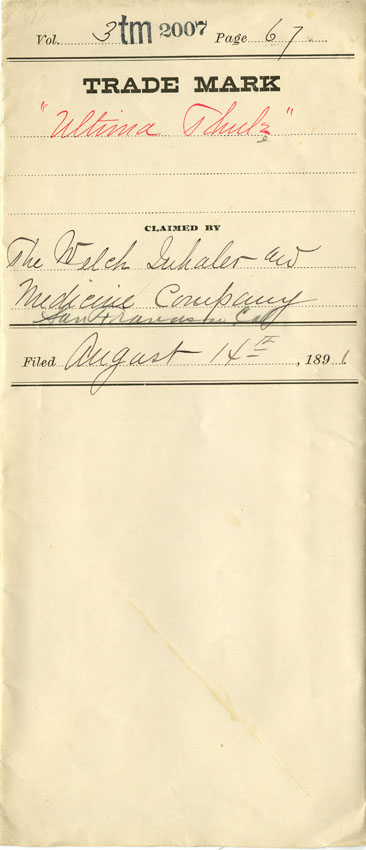 Vol. 3 tm 2007 Page 67
TRADE MARK
"Ultima Thule"
e
CLAIMED BY
The Welch Inhaler and
Medicine Company
San Francisco Cal
Filed August 14th, 1891.